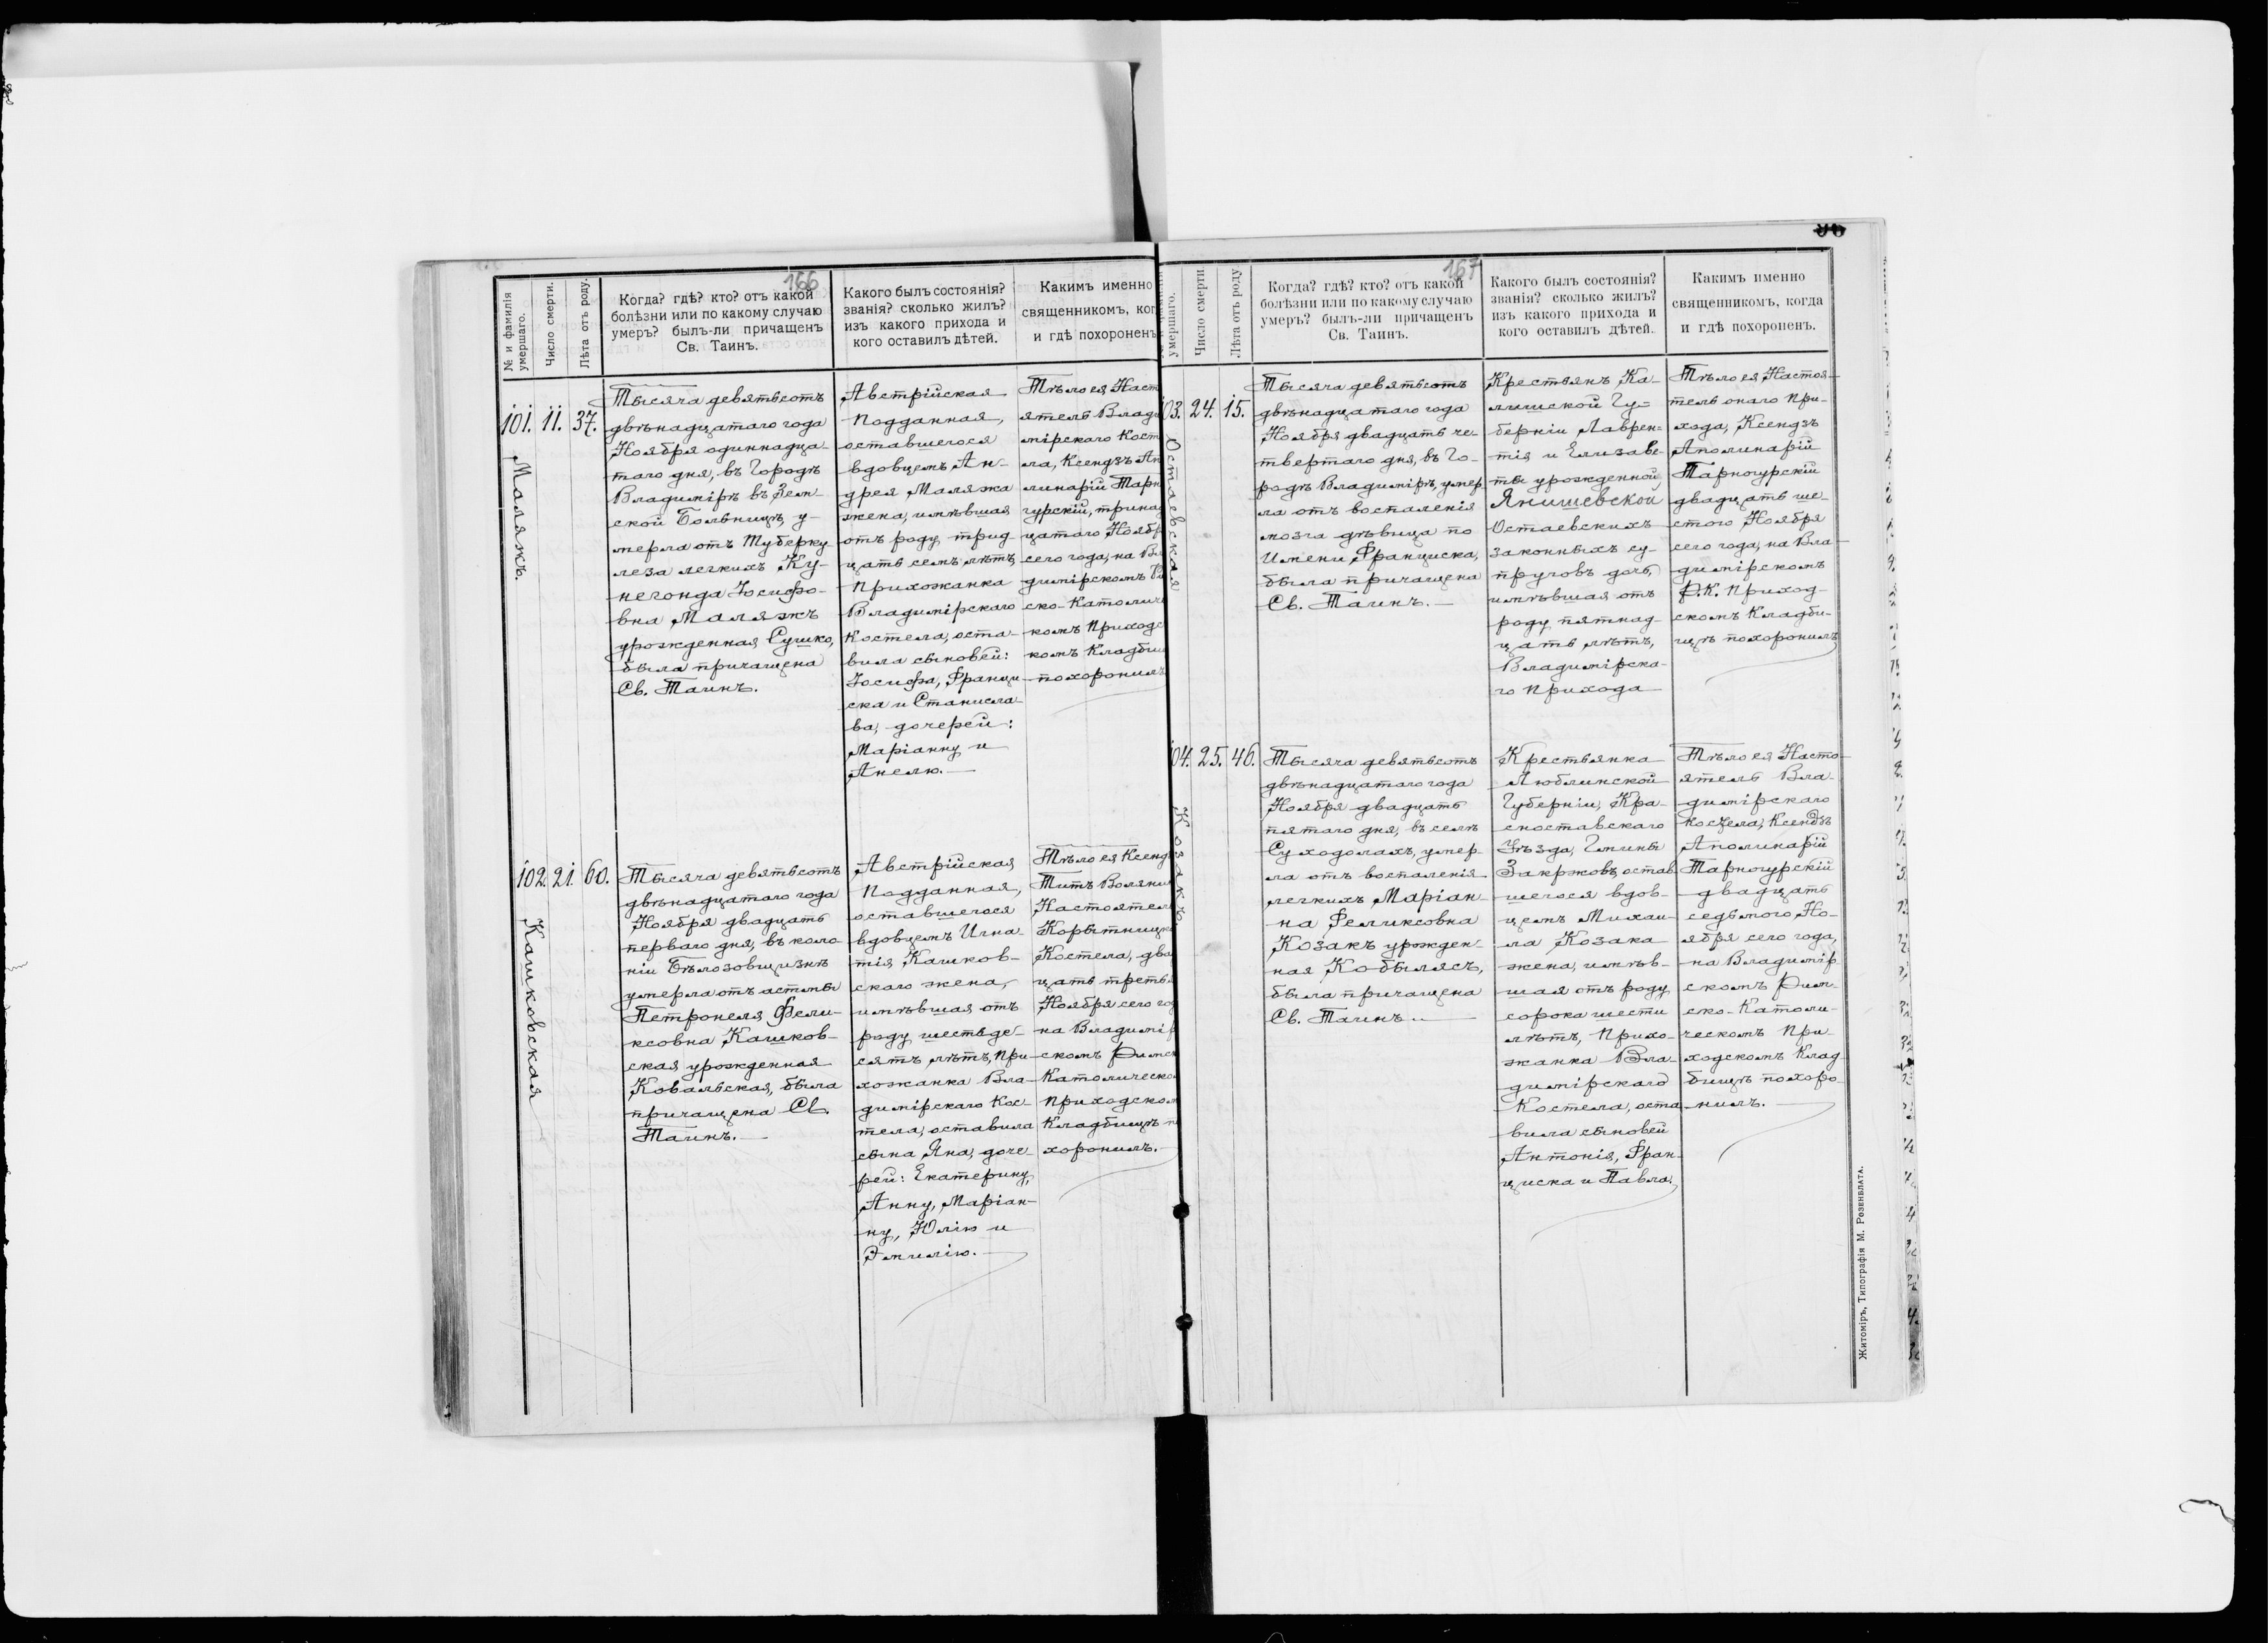 166
№ и фамилія
умершаго.
Число смерти.
Лѣта отъ роду.
Когда? гдѣ? кто? отъ какой
болѣзни или по какому случаю
умеръ? былъ-ли причащенъ
Св. Таинъ.
Какого былъ состоянія?
званія? сколько жилъ?
изъ какого прихода и
кого оставилъ дѣтей.
Какимъ именно
священникомъ, ког
и гдѣ похороненъ
101. 11. 37.
Маляжъ.
Тысяча девятьсотъ
двѣнадцатаго года
Ноября одиннадца-
таго дня, въ Городѣ
Владимірѣ въ Зем-
ской Больницѣ, у-
мерла отъ Туберку
леза легкихъ Ку-
негонда Іосифо-
вна Маляжъ
урожденная Сушко,
была причащена
Св. Таинъ.
Австрійская
Подданная,
оставшегося
вдовцемъ Ан-
дрея Маляжа
жена, имѣвшая
отъ роду трид
цать семь лѣтъ,
Прихожанка
Владимірскаго
Костела, оста-
вила сыновей:
Іосифа, Франци
ска и Станисла
ва, дочерей:
Маріанну и
Анелю.
Тѣло ея Наст
ятель Влади
мірскаго Кост
ла, Ксендзъ Ап
линарій Тарн
гурскій, тринад
цатаго Ноябр
сего года, на Вл
димірскомъ Ри
ско-Католиче
комъ Приходс
комъ Кладбищ
похоронилъ
102. 21. 60.
Кашковская
Тысяча девятьсотъ
двѣнадцатаго года
Ноября двадцать
перваго дня, въ коло
ніи Бѣлозовщизнѣ
умерла отъ астмы
Петронеля Фели-
ксовна Кашков-
ская урожденная
Ковальская, была
причащена Св.
Таинъ.
Австрійская
Подданная,
оставшегося
вдовцемъ Игна-
тія Кашков-
скаго жена,
имѣвшая отъ
роду шестьде-
сятъ лѣтъ, При
хожанка Вла-
димірскаго Кос
тела, оставила
сына Яна, доче-
рей: Екатерину,
Анну, Маріан-
ну, Юлію и
Эмилію.
Тѣло ея Ксенд
Титъ Воляни
Настоятел
Корытницк
Костела, два
цать треть
Ноября сего го
на Владимір
скомъ Римск
Католическо
Приходском
Кладбищѣ п
хоронилъ.
167
умершаго.
Число смерти.
Лѣта отъ роду
Когда? гдѣ? кто? отъ какой
болѣзни или по какому случаю
умеръ? былъ-ли причащенъ
Св. Таинъ.
Какого былъ состоянія?
званія? сколько жилъ?
изъ какого прихода и
кого оставилъ дѣтей.
Какимъ именно
священникомъ, когда
и гдѣ похороненъ.
03. 24. 15.
Остаевская
Тысяча девятьсотъ
двѣнадцатаго года
Ноября двадцать че-
твертаго дня, въ Го-
родѣ Владимірѣ, умер
ла отъ воспаленія
мозга дѣвица по
Имени Франциска,
была причащена
Св. Таинъ.
Крестьянъ Ка-
лишской Гу-
берніи Лаврен-
тія и Елизаве-
ты урожденной
Янишевской
Остаевскихъ
законныхъ су-
пруговъ дочь,
имѣвшая отъ
роду пятнад-
цать лѣтъ,
Владимірска-
го Прихода
Тѣло ея Настоя-
тель онаго При-
хода, Ксендзъ
Аполинарій
Тарногурскій
двадцать ше-
стого Ноября
сего года, на Вла-
димірскомъ
Р.К. Приход-
скомъ Кладби-
щѣ похоронилъ
04. 25. 46.
Козакъ.
Тысяча девятьсотъ
двѣнадцатаго года
Ноября двадцать
пятаго дня, въ селѣ
Суходолахъ, умер-
ла отъ воспаленія
легкихъ Маріан-
на Феликсовна
Козакъ урожден-
ная Кобылясъ,
была причащена
Св. Таинъ.
Крестьянка
Люблинской
Губерніи, Кра-
сноставскаго
Уѣзда, Гмины
Закржовъ, остав
шегося вдов-
цемъ Михаи-
ла Козака
жена, имѣв-
шая отъ роду
сорока шести
лѣтъ, Прихо-
жанка Вла-
димірскаго
Костела, оста
вила сыновей
Антонія, Фран-
циска и Павла,
Тѣло ея Насто-
ятель Вла-
димірскаго
костела, Ксендзъ
Аполинарій
Тарногурскій
двадцать
седьмого Но-
ября сего года,
на Владимір
скомъ Рим-
ско-Католи-
ческомъ При-
ходскомъ Клад-
бищѣ похоро-
нилъ.
Житоміръ, Типографія М. Розенблата.